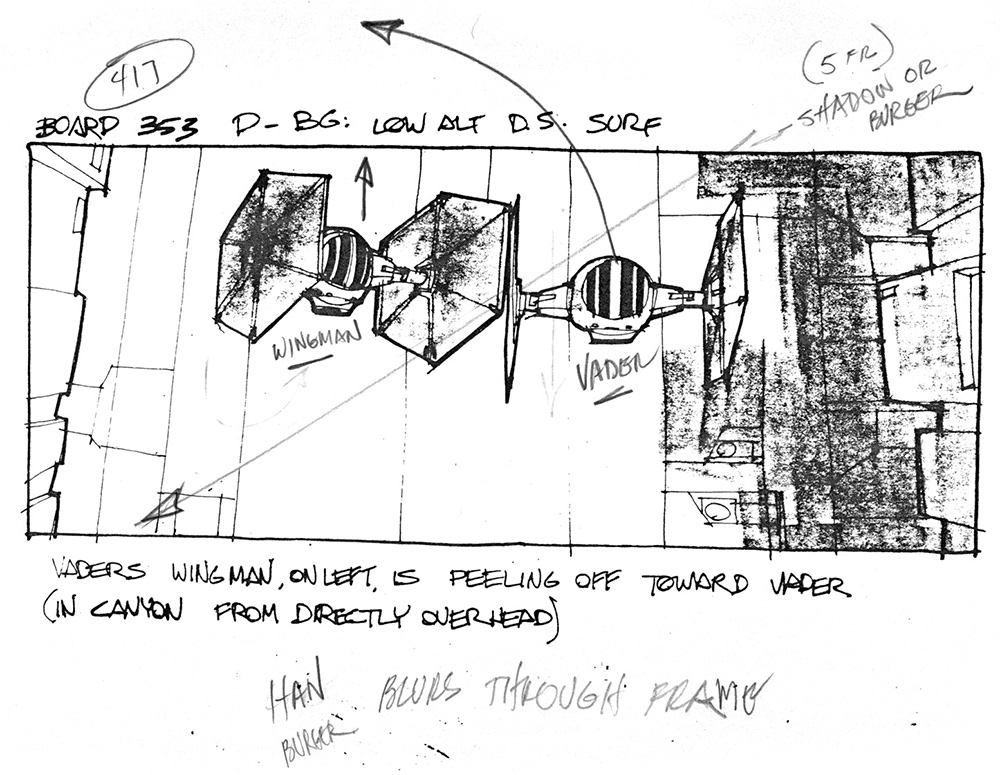 417
(5 FR)
SHADOW OR
BURGER
BOARD 353 D-BG: LOW ALT D.S. SURF
WINGMAN
VADER
VADERS WINGMAN, ON LEFT, IS PEELING OFF TOWARD VADER
(IN CANYON FROM DIRECTLY OVERHEAD)
HAN BLURS THROUGH FRAME
BURGER